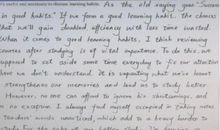 It's useful and necessary to discuss learning habits. As the old saying goes "Success
in good habits." If we form a good learning habit, the chances
that we'll gain doubled efficiency with less time wasted.
When it comes to good learning habits, I think reviewing
courses after studying is of vital importance. To do this, we
supposed to set aside some time everyday to fix our attention
how we don't understand. It is repeating what we've learnt
strengthens our memories and lead us to study better.
However, no one can afford to ignore his shortcomings, and
no exception. I always find myself occupied in taking notes
teachers' words unnoticed, which add to a heavy burden to